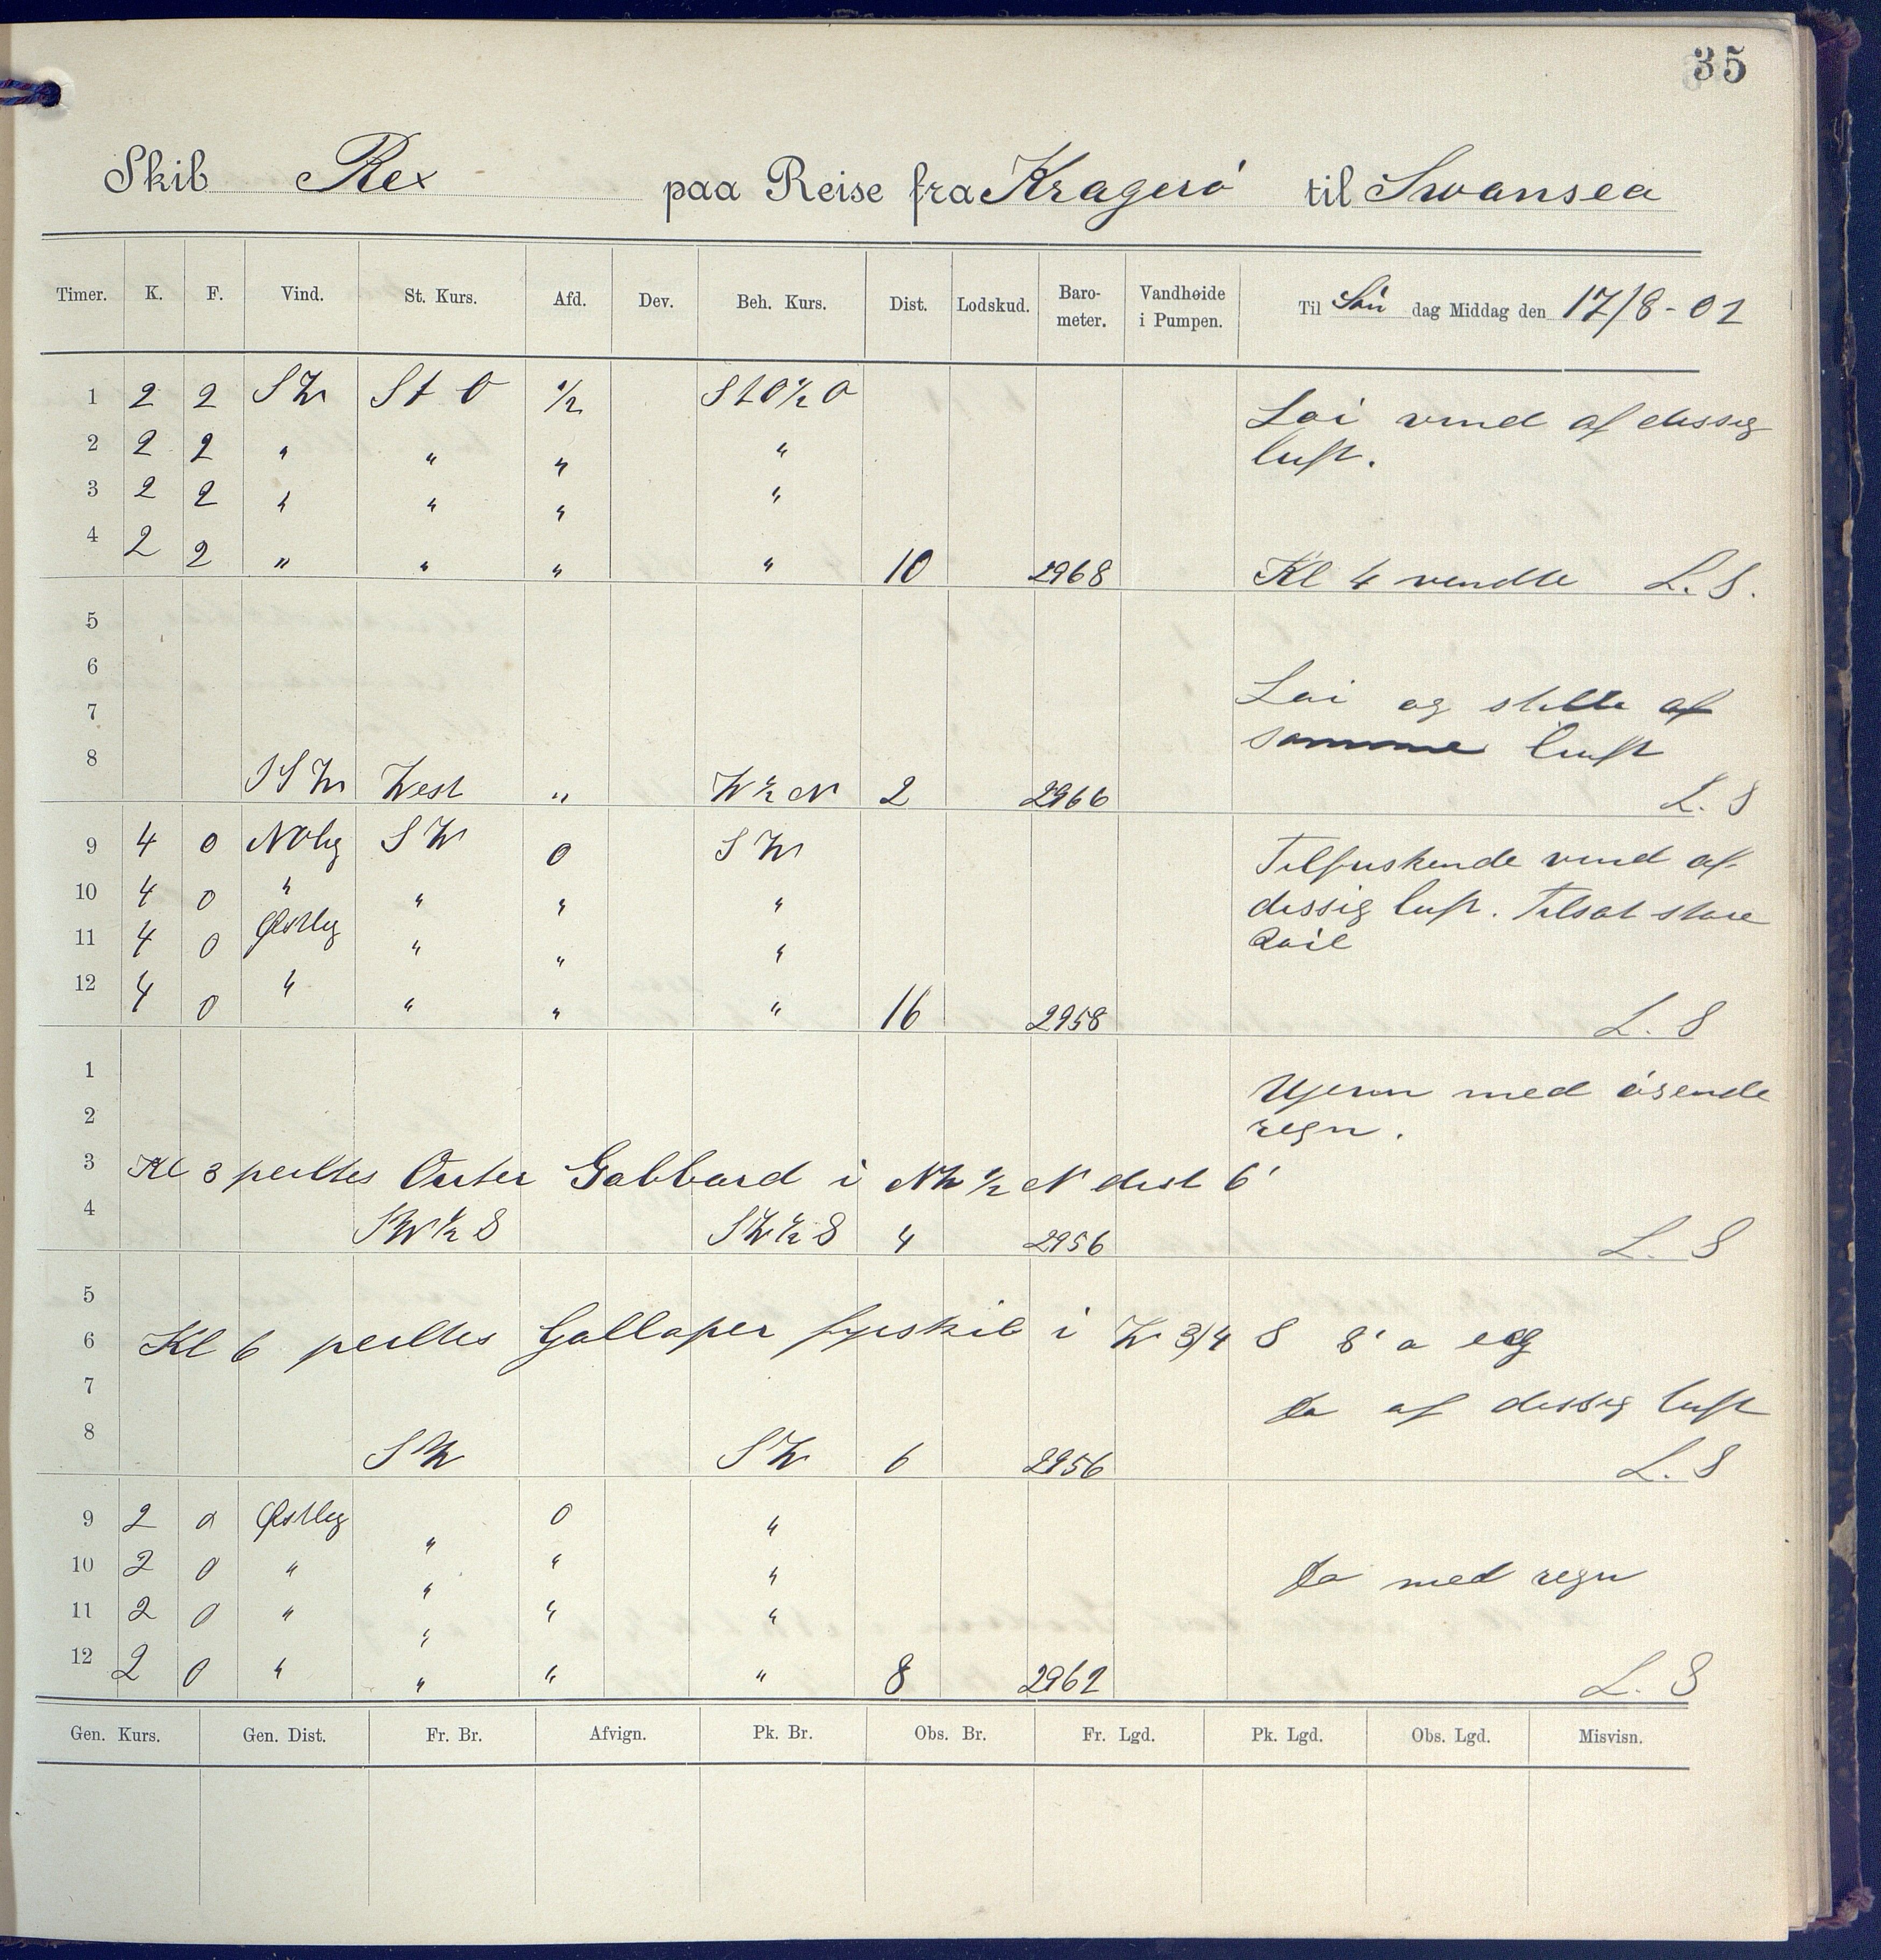 35
Skib Rex paa Reise fra Kragerö til Swansea
Timer. K. F. Vind. St. Kurs. Afd. Dev. Beh. Kurs. Dist. Lodskud. Baro-meter. Vandhøide i Pumpen. Til Sön dag Middag den 17/8-02
1 2 2 SW St O 1/2 St O 1/2 O Loi vind af dissig
2 2 2 " " " " luft.
3 2 2 " " " "
4 2 2 " " " " 10 2968 Kl 4 vendte L. S.
5
6
7 Loi og stille af
samme luft
8 SSW West " W 1/2 N 2 2966 L. S
9 4 0 NOlig SW 0 SW Tilfriskende vind af
10 4 0 " " " " dissig luft. Tilsat store
11 4 0 Østlig " " " Roil
12 4 0 " " " " 16 2958 L. S
1 Ujevn med ösende
2 regn.
3 Kl 3 peiltes Outer Gabbard i NW 1/2 N dist 6'
4 SW 1/2 S SW 1/2 S 4 2956 L. S
5
6 Kl 6 peiltes Galloper fyrskib i W 3/4 S 8' a eg
7 Do af dissig luft
8 SW SW 6 2956 L. S
9 2 0 Østlig " 0 "
10 2 0 " " " " Do med regn
11 2 0 " " " "
12 2 0 " " " " 8 2962 L. S
Gen. Kurs. Gen. Dist. Fr. Br. Afvign. Pk. Br. Obs. Br. Fr. Lgd. Pk. Lgd. Obs. Lgd. Misvisn.